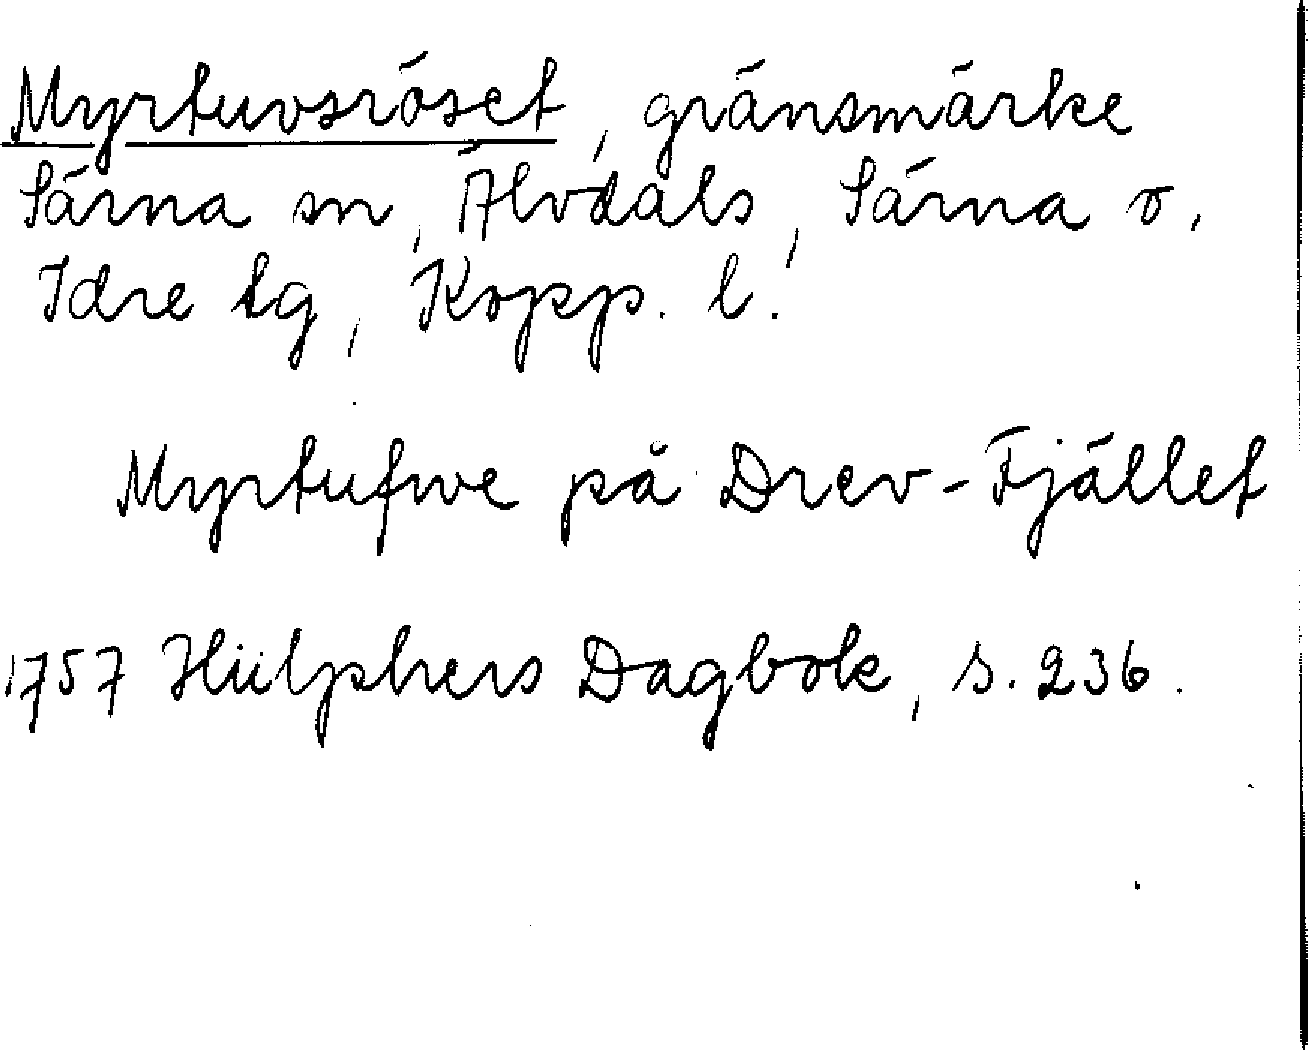 Myrtuvsröset, gränsmärke
Särna sn, Älvdals, Särna o.
Idre tg, Kopp. l.
Myrtufwe på Drev-Fjället
1757 Hülphers Dagbok, s. 236.